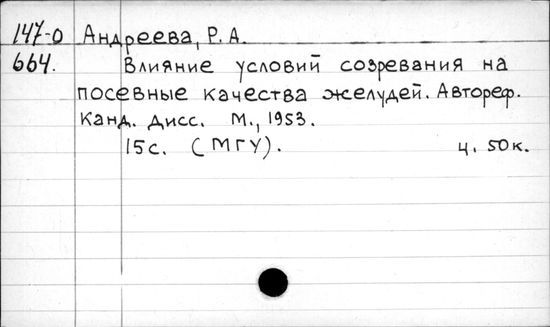 147-0 Андреева, Р. А.
664. Влияние условий созревания на
посевные качества желудей. Автореф.
Канд. дисс. М., 1953.
15 с. (МГУ). ц. 50 к.